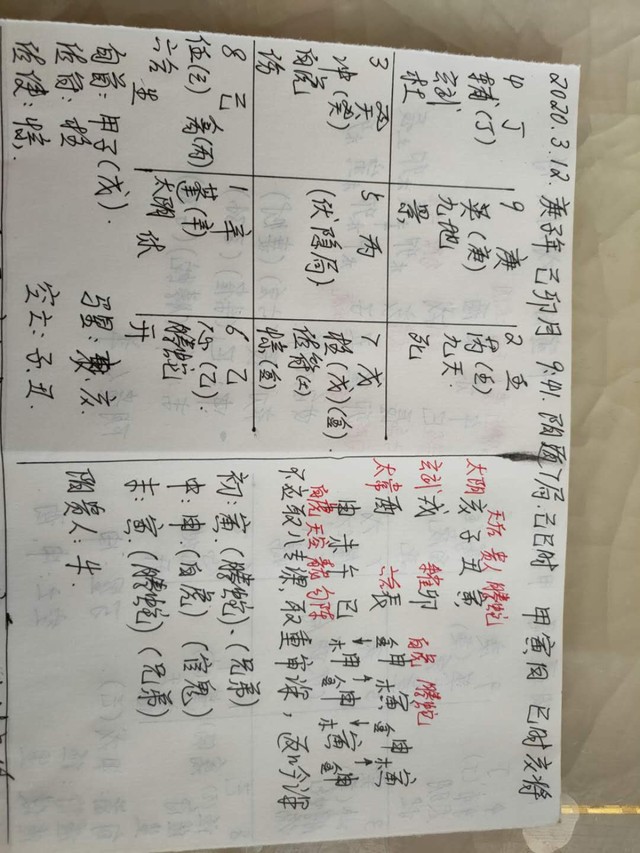 2020.3.12. 庚子年 己卯月 9:41. 阳遁7局. 己巳时 甲寅日 巳时亥将
4 丁
辅(丁)
玄武
杜
9 庚
英(庚)
九地
景
2
芮
九天
死
3
天
冲(癸)
白虎
伤
5 丙
(伏隐局)
7 戊
柱(戊)(金)
值符(土)
惊(金)
8 己 禽(丙)
任(己)
六合
生
1 辛
蓬(辛)
太阴 休
6 乙
心(乙)
螣蛇
开
旬首：甲子(戊).
值符：柱
值使：惊.
马星： 亥.
空亡：子.丑.
天后 贵人 螣蛇
太阴 亥 子 丑 寅
玄武 戌 卯
太常 酉 六合 辰
申 未 午 巳
白虎 天空 青龙 勾陈
白虎 螣蛇
申金 寅木 申金 寅木
寅木 申金
不应取八专课, 取重审课, 返吟课
初：寅.(螣蛇).(兄弟)
中：申.(白虎) (官鬼)
末：寅.(螣蛇) (兄弟)
阳贵人：牛.